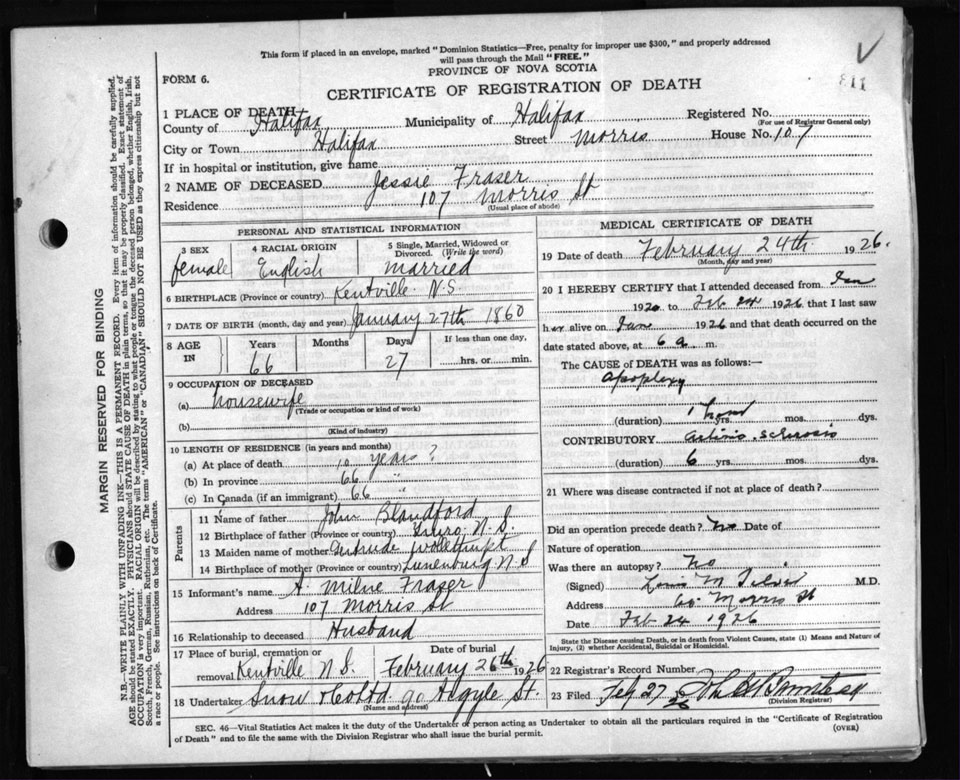 This form if placed in an envelope, marked "Dominion Statistics—Free, penalty for improper use $300," and properly addressed
will pass through the Mail "FREE."
PROVINCE OF NOVA SCOTIA
FORM 6.
CERTIFICATE OF REGISTRATION OF DEATH
811
1 PLACE OF DEATH
County of Halifax Municipality of Halifax Registered No.
(For use of Registrar General only)
City or Town Halifax Street Morris House No. 107
If in hospital or institution, give name
2 NAME OF DECEASED Jessie Fraser
Residence 107 Morris St
(Usual place of abode)
PERSONAL AND STATISTICAL INFORMATION
3 SEX 4 RACIAL ORIGIN 5 Single, Married, Widowed or Divorced. (Write the word)
female English married
6 BIRTHPLACE (Province or country) Kentville N.S
7 DATE OF BIRTH (month, day and year) January 27th 1860
8 AGE IN Years Months Days If less than one day,
66 27 hrs. or min.
9 OCCUPATION OF DECEASED
(a) housewife
(Trade or occupation or kind of work)
(b)
(Kind of industry)
10 LENGTH OF RESIDENCE (in years and months)
(a) At place of death 10 years?
(b) In province 66 "
(c) In Canada (if an immigrant) 66 "
Parents
11 Name of father John Blandford
12 Birthplace of father (Province or country) Truro N.S.
13 Maiden name of mother Gertrude
14 Birthplace of mother (Province or country) Lunenburg N S
15 Informant's name A. Milne Fraser
Address 107 Morris St
16 Relationship to deceased Husband
17 Place of burial, cremation or removal Kentville N.S. Date of burial February 26th 1926
18 Undertaker Snow & Co Ltd 90 Argyle St.
(Name and address)
MEDICAL CERTIFICATE OF DEATH
19 Date of death February 24th 1926.
(Month, day and year)
20 I HEREBY CERTIFY that I attended deceased from Jan
1920 to Feb 24 1926 that I last saw
her alive on Jan 1926 and that death occurred on the
date stated above, at 6 a. m.
The CAUSE OF DEATH was as follows:—
apoplexy
(duration) 1 hour yrs. mos. dys.
CONTRIBUTORY arterio-sclerosis
(duration) 6 yrs. mos. dys.
21 Where was disease contracted if not at place of death?
Did an operation precede death? no Date of
Nature of operation
Was there an autopsy? No
(Signed) Louis M Silver M.D.
Address Morris St
Date Feb 24 1926
State the Disease causing Death, or in death from Violent Causes, state (1) Means and Nature of
Injury, (2) whether Accidental, Suicidal or Homicidal.
22 Registrar's Record Number
23 Filed Feb 27 26
(Division Registrar)
SEC. 46—Vital Statistics Act makes it the duty of the Undertaker or person acting as Undertaker to obtain all the particulars required in the "Certificate of Registration
of Death" and to file the same with the Division Registrar who shall issue the burial permit.
(OVER)
MARGIN RESERVED FOR BINDING
N.B.—WRITE PLAINLY WITH UNFADING INK—THIS IS A PERMANENT RECORD. Every item of information should be carefully supplied.
AGE should be stated EXACTLY. PHYSICIANS should STATE CAUSE OF DEATH in plain terms, so that it may be properly classified. Exact statement of
OCCUPATION is very important. RACIAL ORIGIN will be described by stating to what people or tongue the deceased person belonged, whether English, Irish,
Scotch, French, German, Russian, Ruthenian, etc. The terms "AMERICAN" or "CANADIAN" SHOULD NOT BE USED as they express citizenship but not
a race or people. See instructions on back of Certificate.